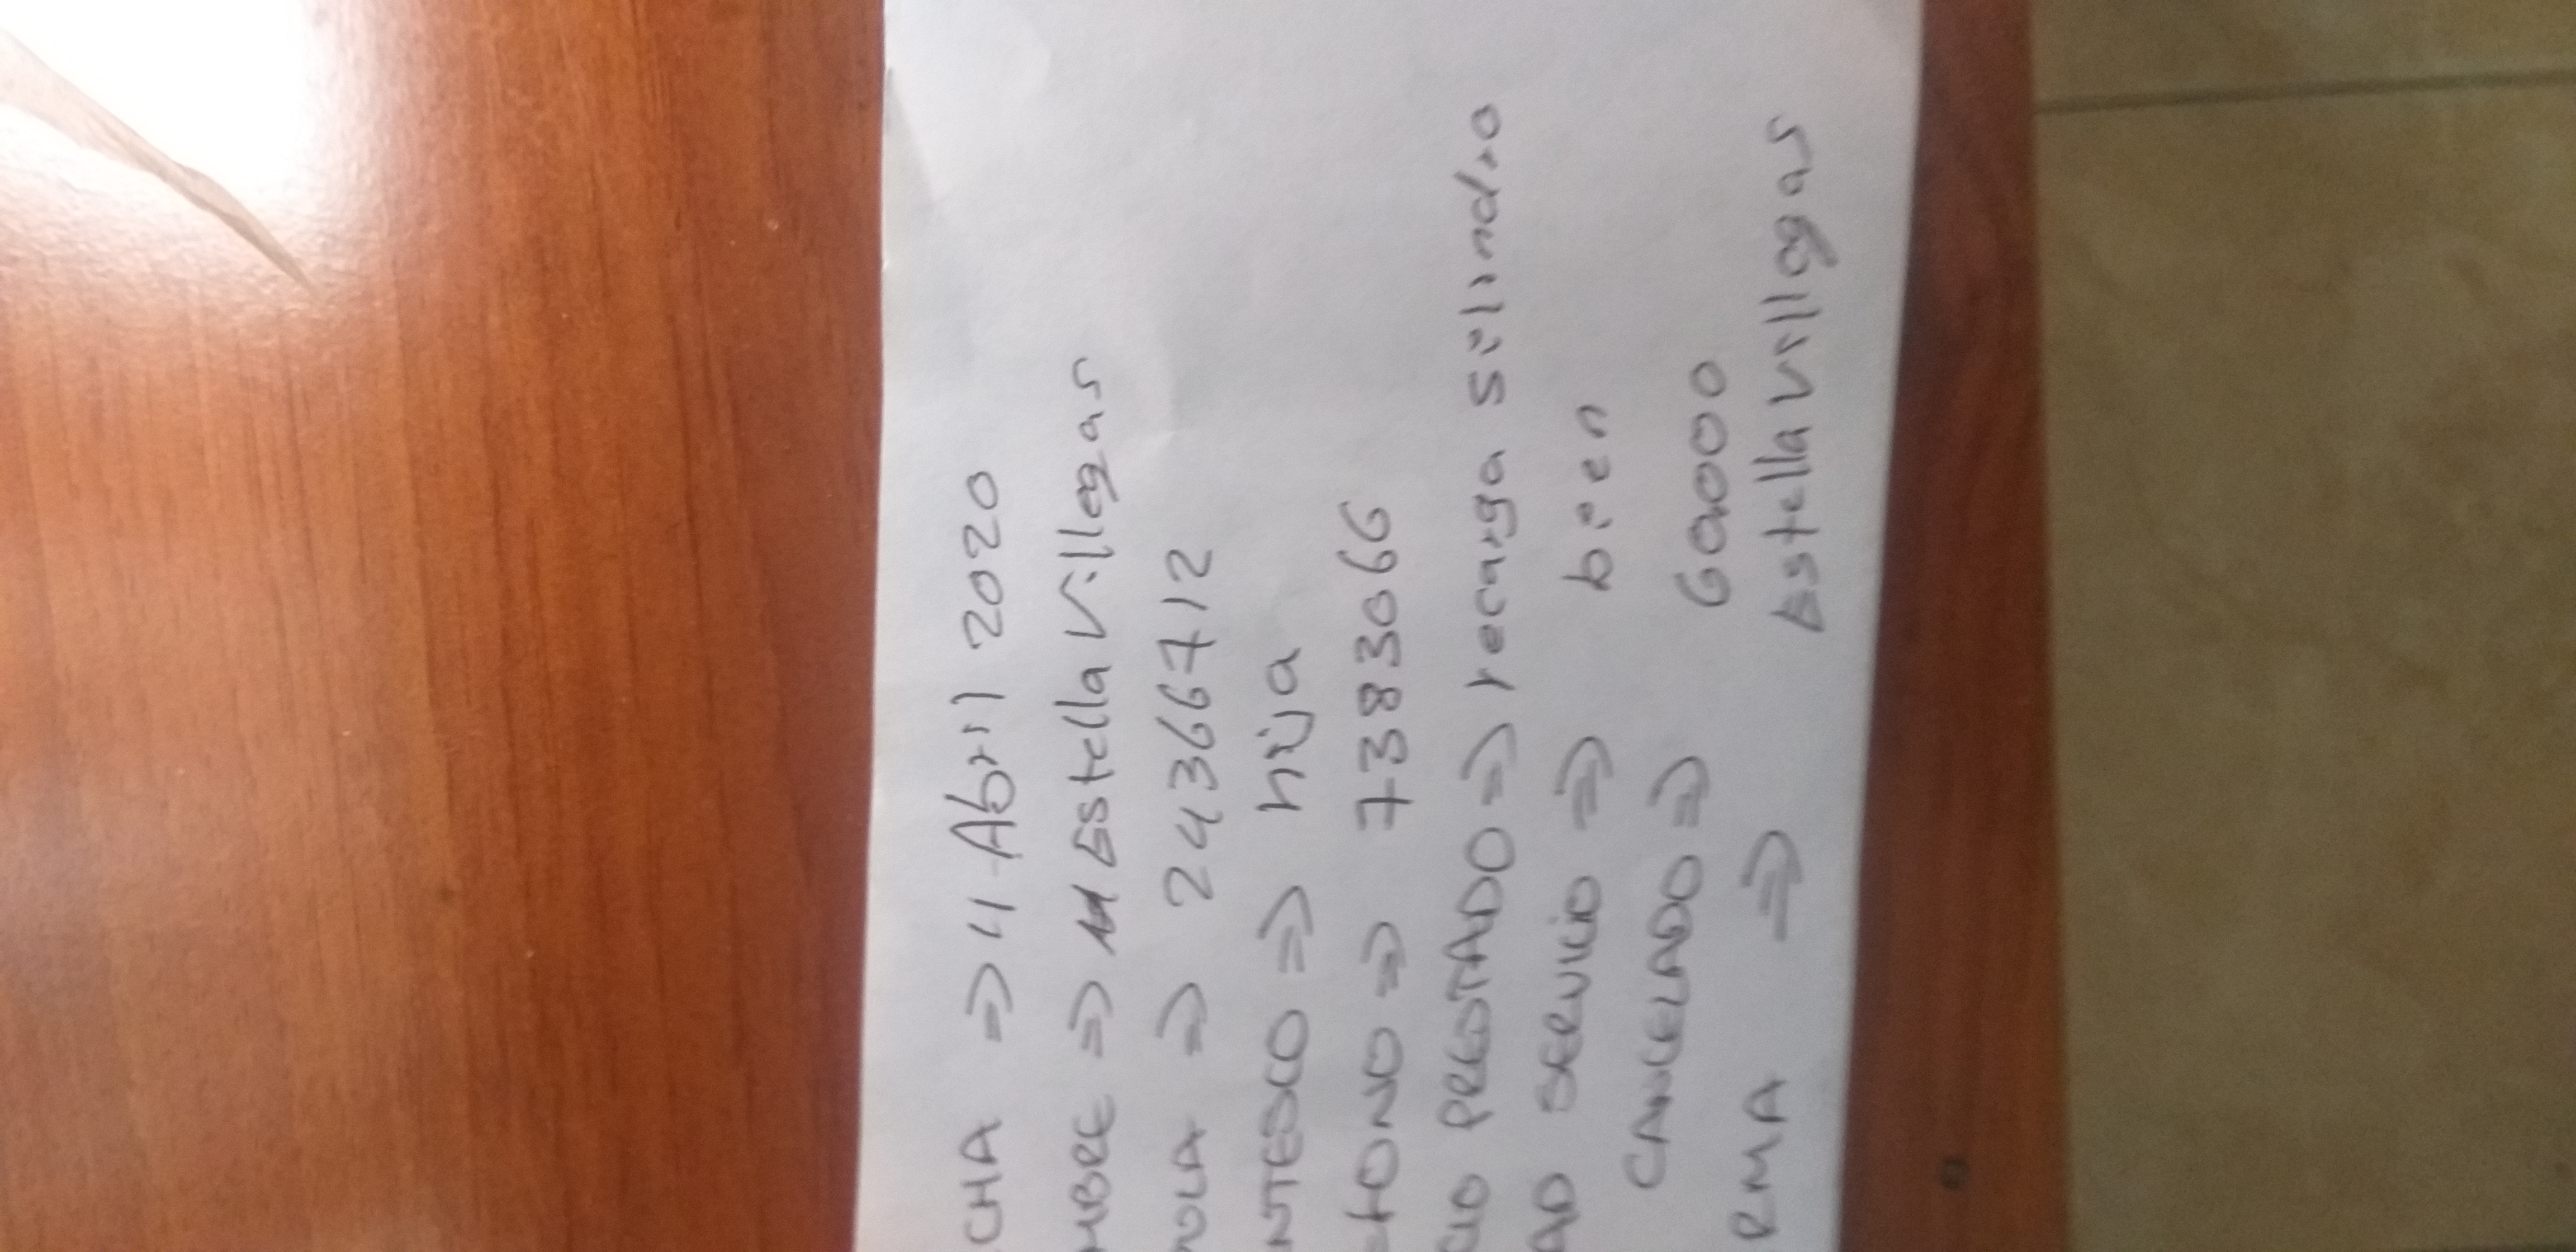 CHA => 4 Abril 2020
MBRE => M Estella Villegas
DULA => 24366712
NTESCO => hija
EFONO => 7383066
CIO PRESTADO => recarga silindro
AD SERVICIO => bien
CANCELADO => 60000
RMA => Estella Villegas